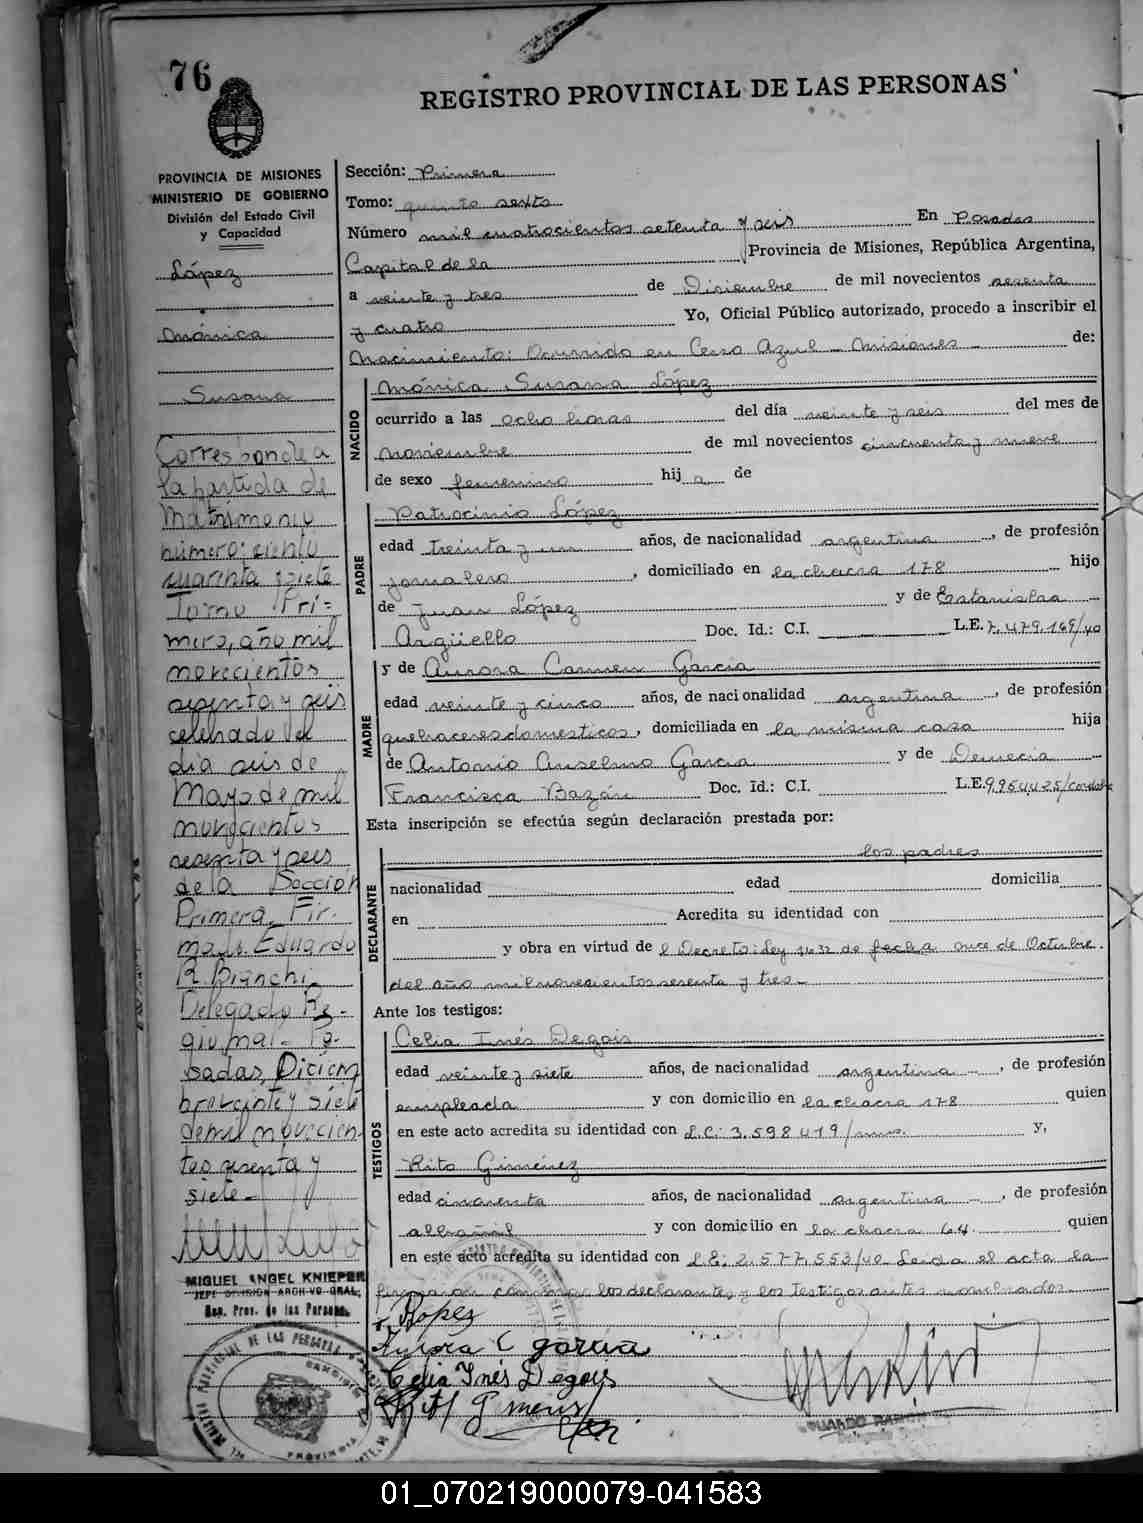 76
REGISTRO PROVINCIAL DE LAS PERSONAS
PROVINCIA DE MISIONES
MINISTERIO DE GOBIERNO
División del Estado Civil
y Capacidad
López
Mónica
Susana
Corresponde a
la partida de
Matrimonio
número: ciento
cuarenta y siete
Tomo Pri=
mero, año mil
novecientos
sesenta y seis
celebrado el
día seis de
Mayo de mil
novecientos
sesenta y seis
de la Sección
Primera. Fir.
mado. Eduardo
R. Bianchi
Delegado Re-
gional - Po-
sadas, Diciem
bre veinte y siete
de mil novecien
tos sesenta y
siete -
MIGUEL ANGEL KNIEPER
JEFE DIVISION ARCHIVO GRAL.
Reg. Prov. de las Personas
Sección: Primera
Tomo: quinto sexto
Número mil cuatrocientos setenta y seis En Posadas
Capital de la Provincia de Misiones, República Argentina,
a veinte y tres de Diciembre de mil novecientos sesenta
y cuatro Yo, Oficial Público autorizado, procedo a inscribir el
Nacimiento: Ocurrido en Cerro Azul - Misiones - de:
NACIDO
Mónica Susana López
ocurrido a las ocho horas del día veinte y seis del mes de
noviembre de mil novecientos cincuenta y nueve
de sexo femenino hij a de
PADRE
Patrocinio López
edad treinta y un años, de nacionalidad argentina, de profesión
jornalero, domiciliado en la chacra 178 hijo
de Juan López y de Estanislaa
Argüello Doc. Id.: C.I. L.E. 7.479.169/40
MADRE
y de Aurora Carmen García
edad veinte y cinco años, de nacionalidad argentina, de profesión
quehaceres domesticos, domiciliada en la misma casa hija
de Antonio Anselmo García y de Denecia
Francisca Bazán Doc. Id.: C.I. L.E. 9.954425/cordoba
Esta inscripción se efectúa según declaración prestada por:
DECLARANTE
los padres
nacionalidad edad domicilia
en Acredita su identidad con
y obra en virtud de l Decreto: Ley 1632 de fecha once de Octubre
del año mil novecientos sesenta y tres -
Ante los testigos:
TESTIGOS
Celia Inés Degois
edad veinte y siete años, de nacionalidad argentina, de profesión
empleada y con domicilio en la chacra 178 quien
en este acto acredita su identidad con L.C: 3.598419/mns. y,
Rito Giménez
edad cincuenta años, de nacionalidad argentina, de profesión
albañil y con domicilio en la chacra 64. quien
en este acto acredita su identidad con L.E: 2.577.553/40. Leida el acta la
firmaron conmigo los declarantes y los testigos antes nombrados.
P. López
Aurora C garcia
Celia Inés Degois
EDUARDO RAMON
01_070219000079-041583